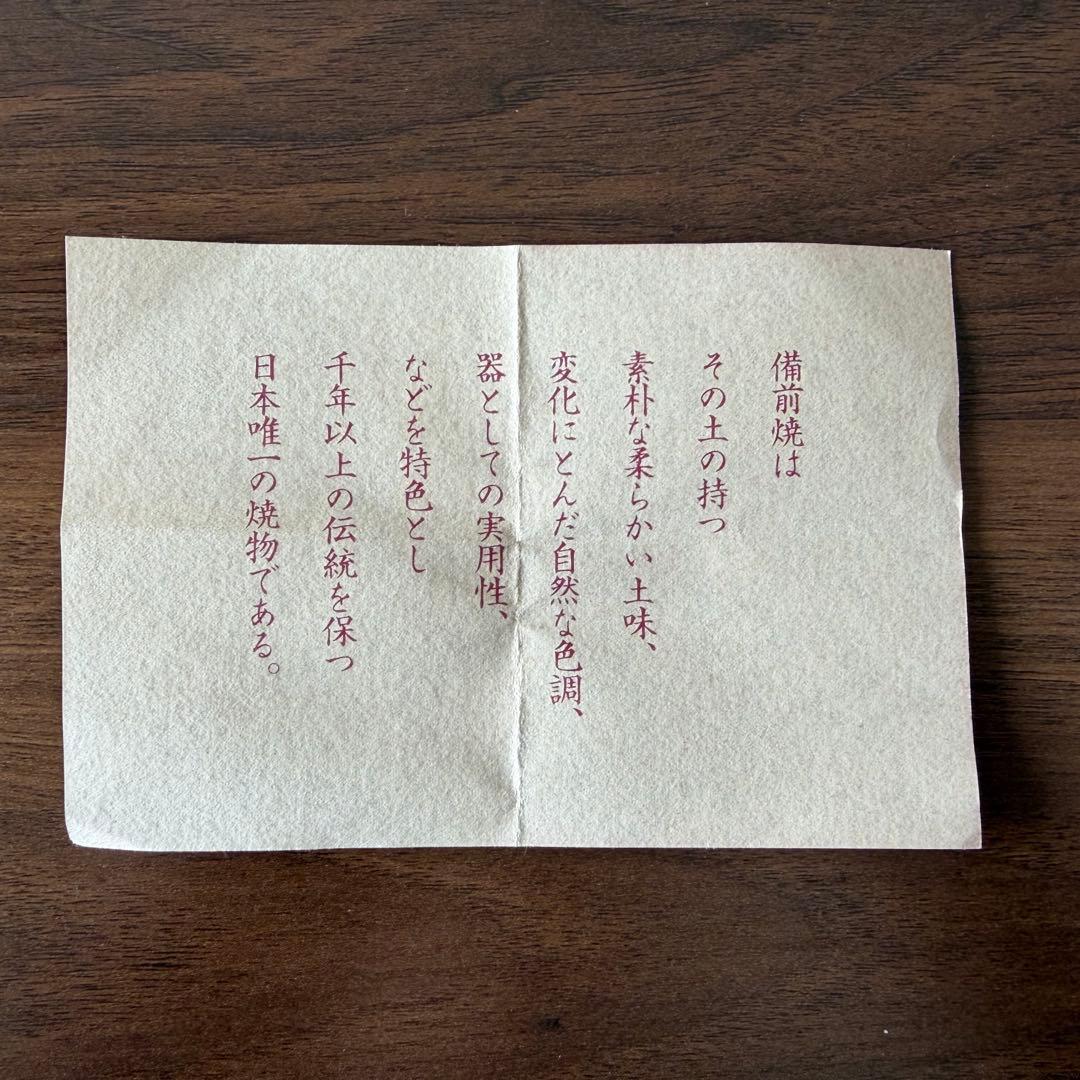 備前焼は
その土の持つ
素朴な柔らかい土味、
変化にとんだ自然な色調、
器としての実用性、
などを特色とし
千年以上の伝統を保つ
日本唯一の焼物である。